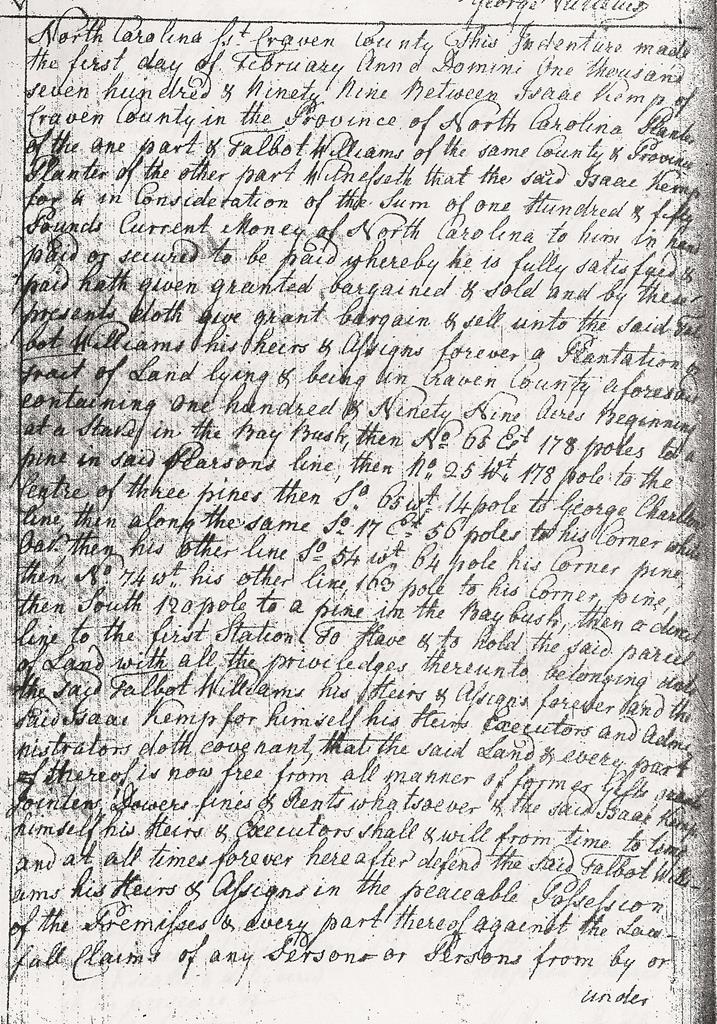 George Williams
North Carolina Sst. Craven County This Indenture made
the first day of February Anno Domini One thousand
seven hundred & Ninety Nine Between Isaac Kemp of
Craven County in the Province of North Carolina Planter
of the one part & Talbot Williams of the same County & Province
Planter of the other part Witnesseth that the said Isaac Kemp
for & in Consideration of the Sum of one Hundred & fifty
Pounds Current Money of North Carolina to him in hand
paid or secured to be paid whereby he is fully satisfyed &
paid hath given granted bargained & sold and by these
presents doth give grant bargain & sell unto the said Tal
bot Williams his heirs & Assigns forever a Plantation or
tract of Land lying & being in Craven County aforesaid
containing One hundred & Ninety Nine Acres Beginning
at a Stake in the Bay Bush, then No. 65 Est 178 poles to a
pine in said Pearsons line, then No. 25 Wt. 178 pole to the
Centre of three pines then So. 65 wt. 14 pole to George Charlton
line, then along the same So. 17 Et. 56 poles to his Corner white
Oak then his other line So. 54 wt. 64 pole his Corner pine
then No. 74 wt. his other line, 163 pole to his Corner, pine,
then South 120 pole to a pine in the Baybush, then a direct
line to the first Station To Have & to hold the said parcel
of Land with all the priviledges thereunto belonging unto
the said Talbot Williams his Heirs & Assigns forever and the
said Isaac Kemp for himself his Heirs Executors and Admi
nistrators doth covenant, that the said Land & every part
thereof is now free from all manner of former Gifts
Jointers Dowers fines & Rents whatsoever & the said Isaac Kemp
himself his Heirs & Executors shall & will from time to time
and at all times forever hereafter defend the said Talbot Willi
ams his Heirs & Assigns in the peaceable Possession
of the Premisses & every part thereof against the Law-
full Claims of any Person or Persons from by or
under